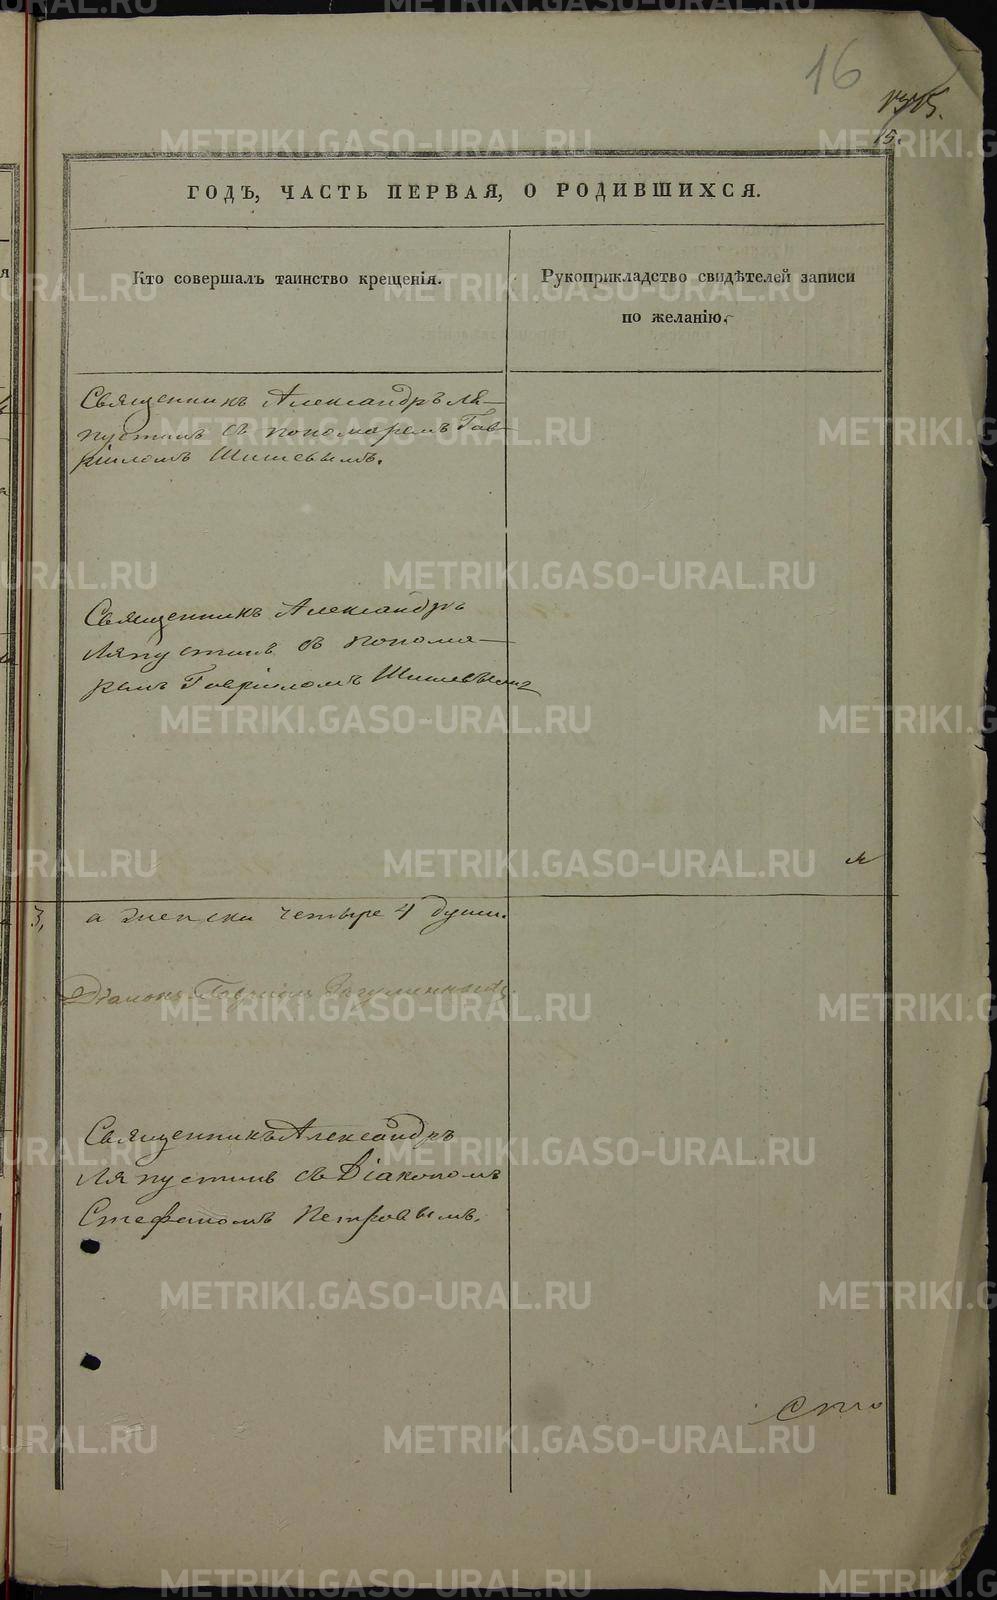 16
15.
ГОДЪ, ЧАСТЬ ПЕРВАЯ, О РОДИВШИХСЯ.
Кто совершалъ таинство крещенія.
Рукоприкладство свидѣтелей записи
по желанію.
Священникъ Александръ Ля-
пустинъ съ пономаремъ Гав-
ріиломъ Шишевымъ.
Священникъ Александръ
Ляпустинъ съ понома-
ремъ Гавріиломъ Шишевымъ
а женска четыре 4 души.
Діаконъ Гавріилъ
Священникъ Александръ
Ляпустинъ съ Діакономъ
Стефаномъ Петровымъ.
METRIKI.GASO-URAL.RU